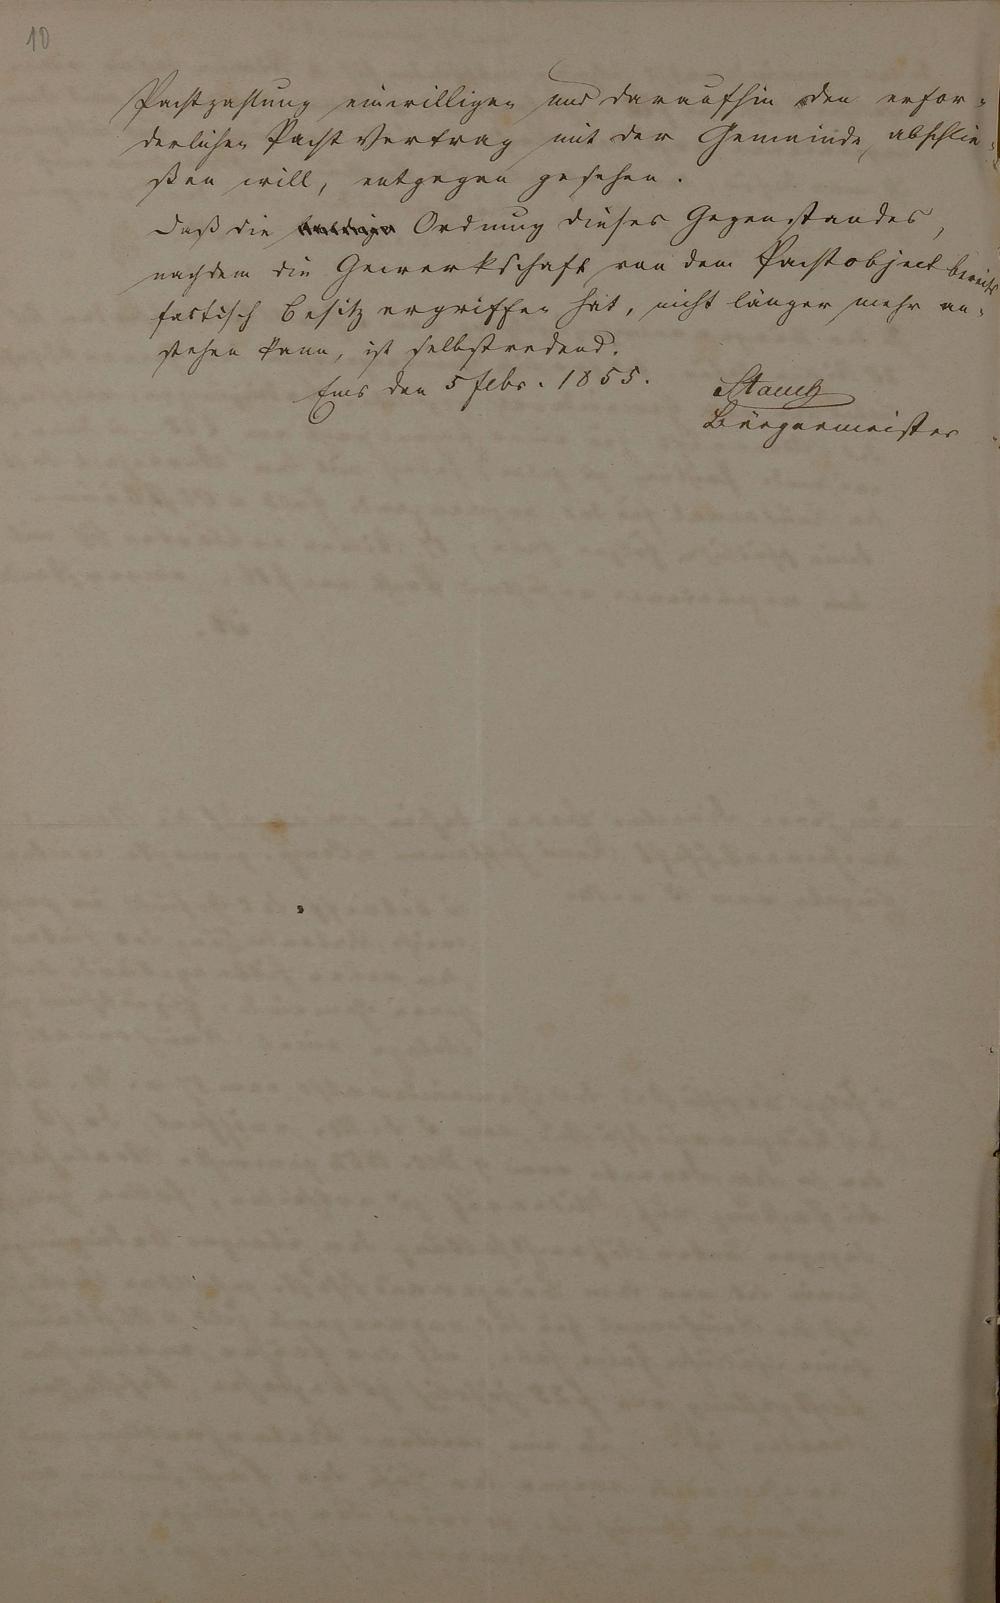 10
Pachtzahlung einwilligen und daraufhin den erfor-
derlichen Pacht Vertrag mit der Gemeinde abschlie-
ßen will, entgegen gesehen.
Daß die Ordnung dieses Gegenstandes,
nachdem die Gewerkschaft von dem Pachtobject bereits
factisch Besitz ergriffen hat, nicht länger mehr an-
stehen kann, ist selbstredend.
Ems den 5 Febr. 1855.
Bürgermeister